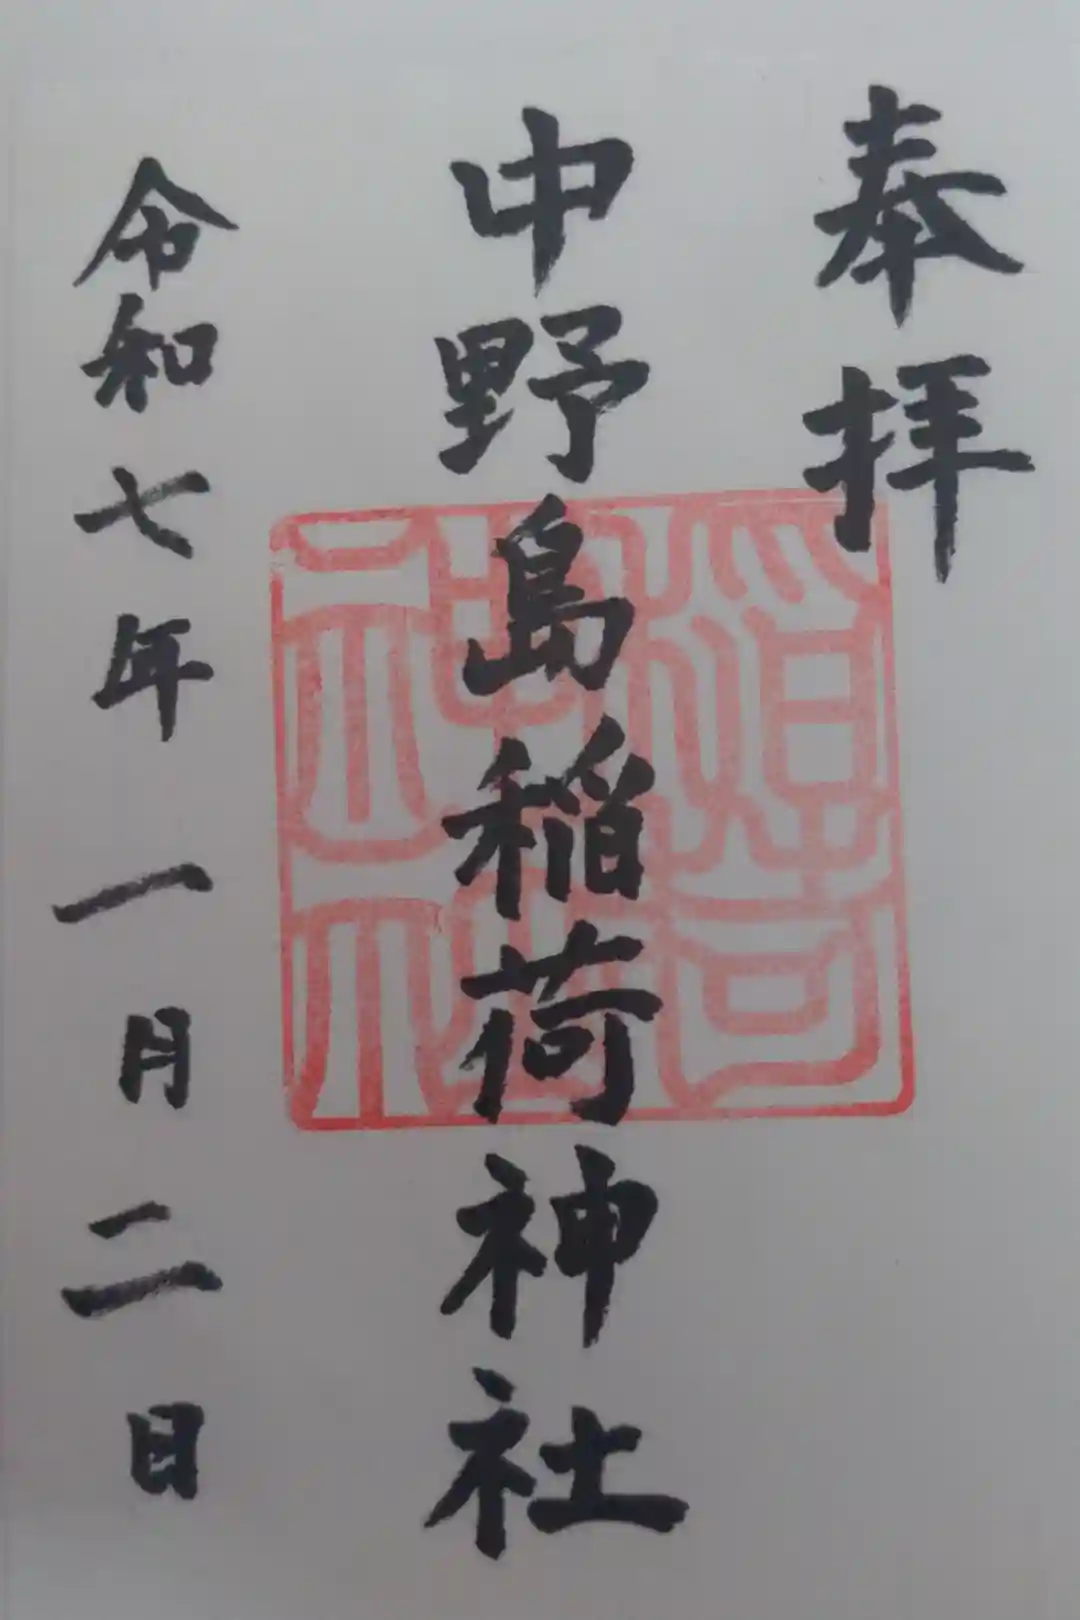 奉拝
中野島稲荷神社
令和七年一月二日
稲荷神社